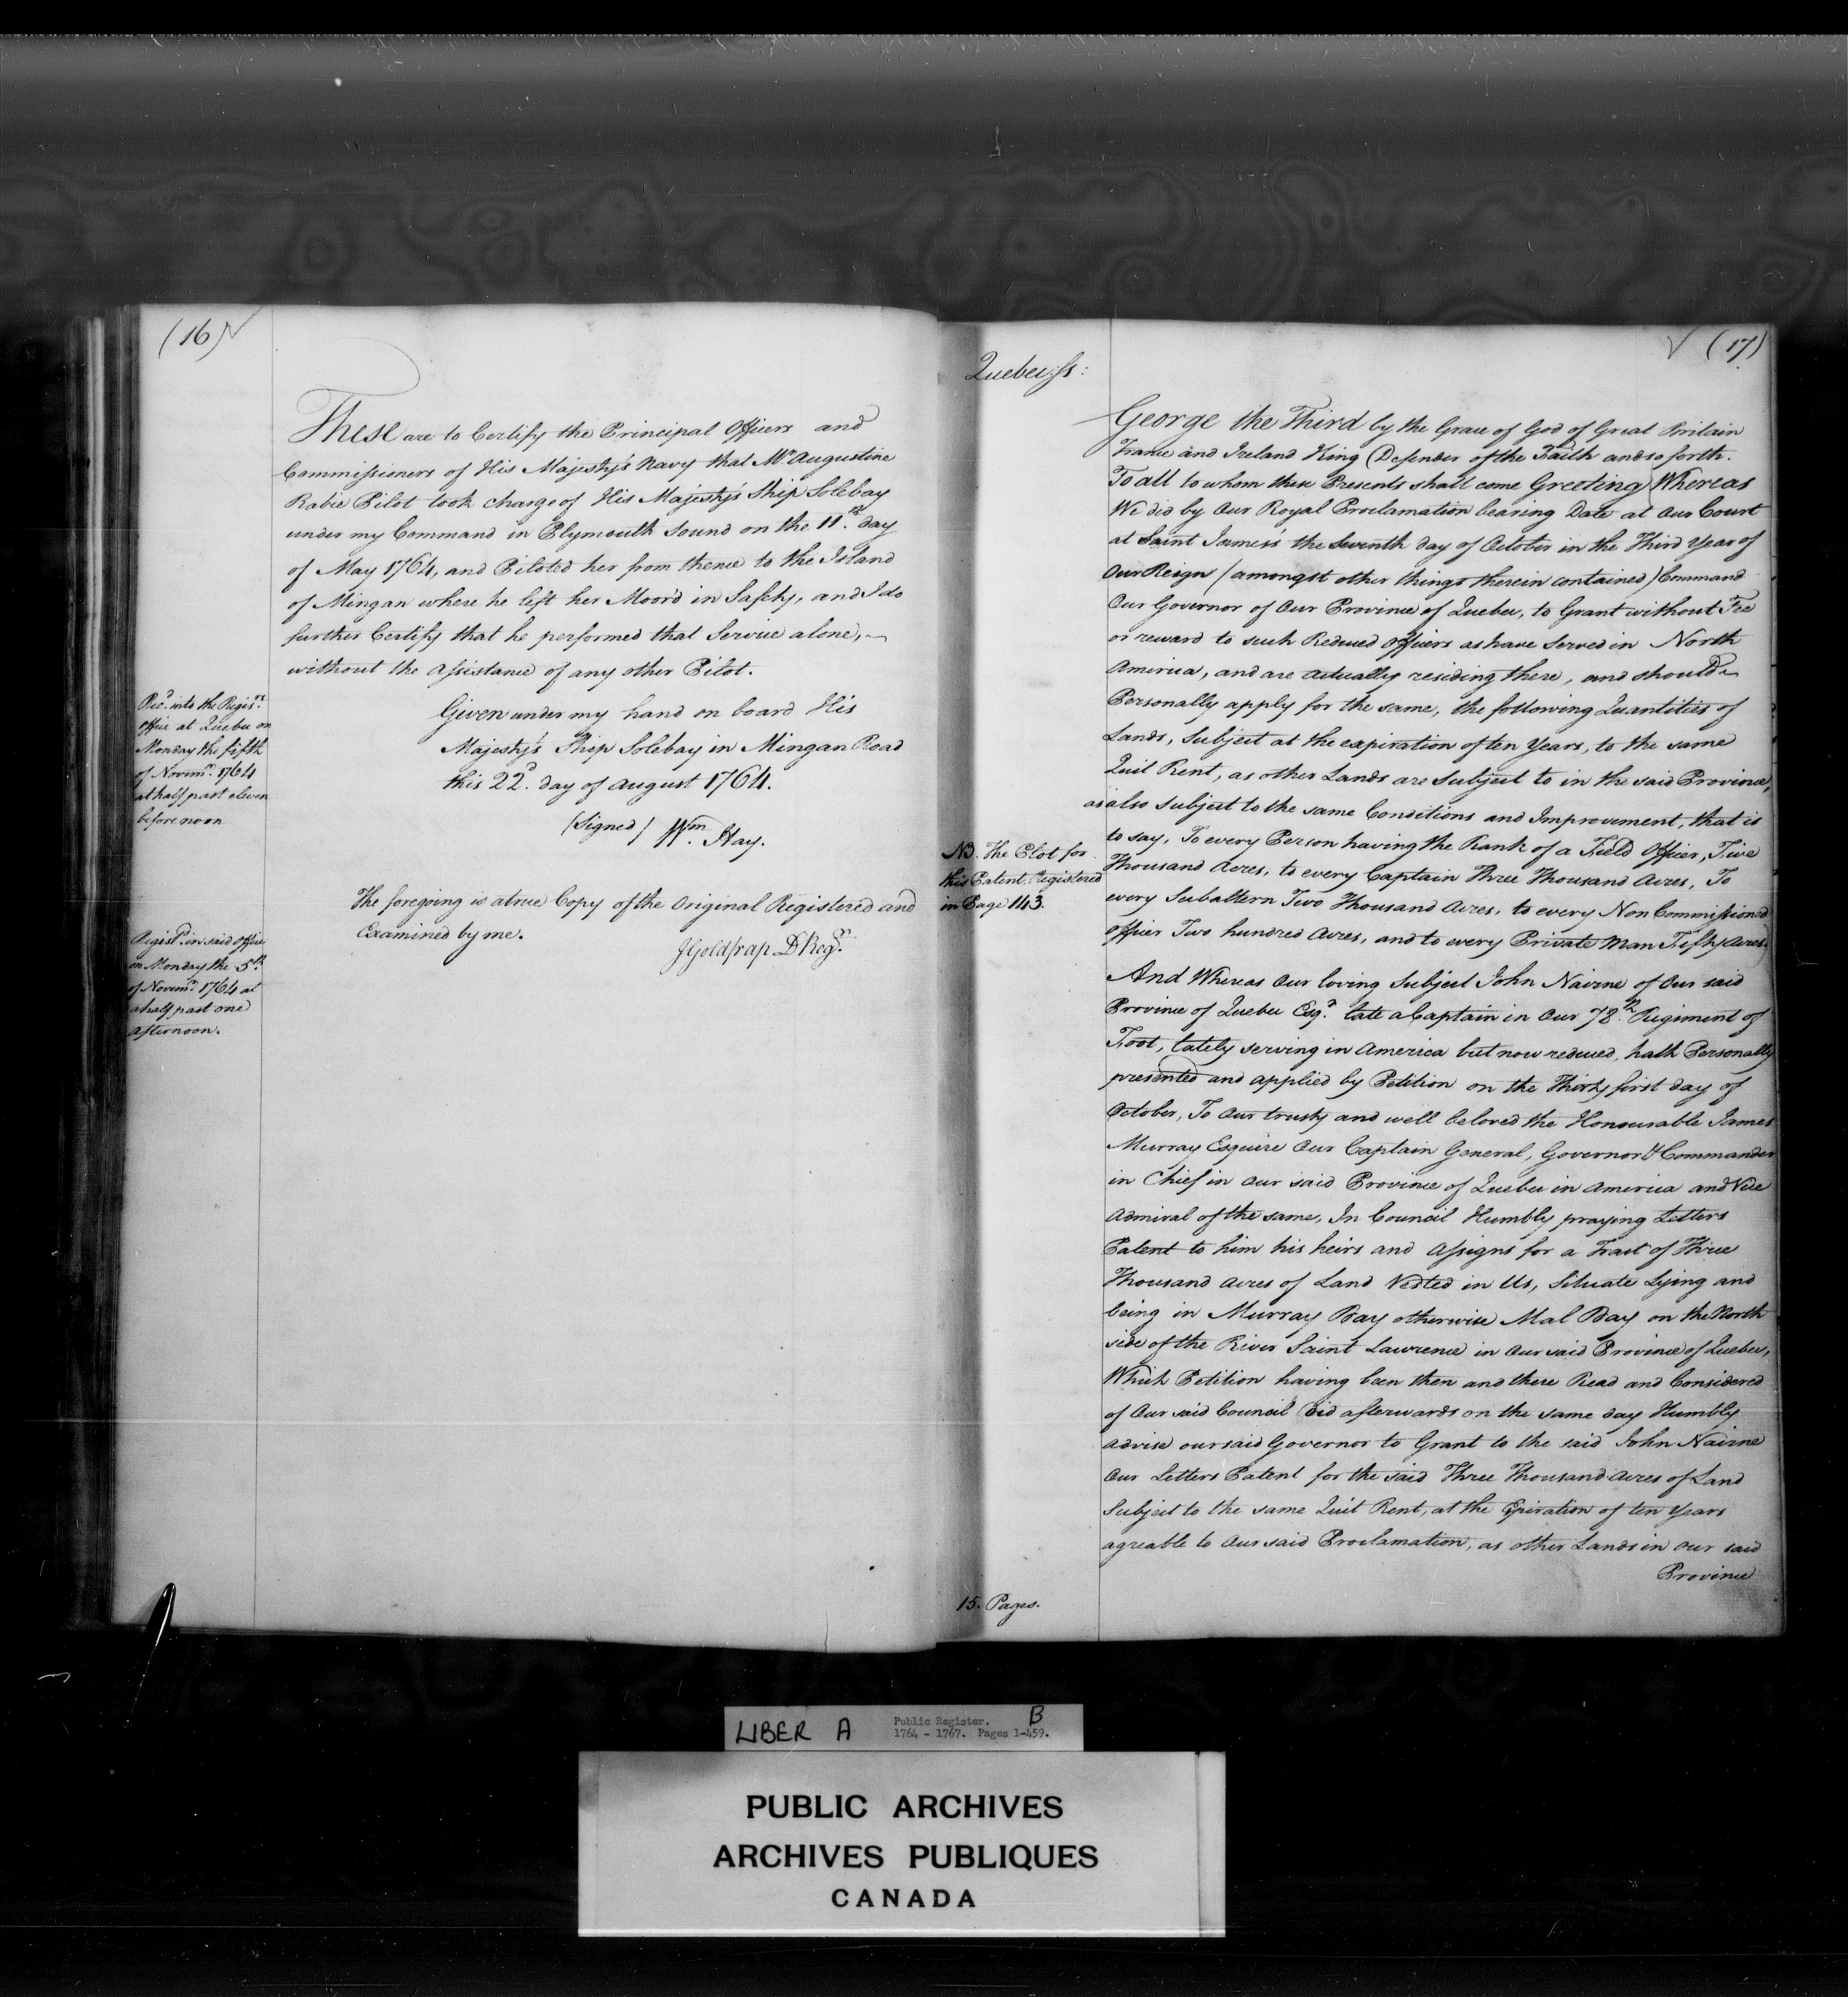 (16)
These are to Certify the Principal Officers and
Commissioners of His Majesty's Navy that Mr. Augustine
Rabie Pilot took charge of His Majesty's Ship Solebay
under my Command in Plymouth Sound on the 11.th day
of May 1764, and Piloted her from thence to the Island
of Mingan where he left her Moor'd in Safety, and I do
further Certify that he performed that Service alone,
without the Assistance of any other Pilot.
Given under my hand on board His
Majesty's Ship Solebay in Mingan Road
this 22.d day of August 1764.
(Signed) Wm. Hay.
Rec.d into the Regis.rs
Office at Quebec on
Monday the fifth
of Novem.r 1764
at half past eleven
before noon
The foregoing is a true Copy of the Original Registered and
Examined by me.
J Goldfrap D Reg.r
Regist.d in said Office
on Monday the 5.th
of Novem.r 1764 at
a half past one
afternoon.
(17)
Quebec ss:
George the Third by the Grace of God of Great Britain
France and Ireland King Defender of the Faith and so forth.
To all to whom these Presents shall come Greeting Whereas
We did by Our Royal Proclamation bearing Date at Our Court
at Saint James's the Seventh day of October in the Third Year of
Our Reign (amongst other things therein contained) Command
Our Governor of Our Province of Quebec, to Grant without Fee
or reward to such Reduced Officers as have Served in North
America, and are actually residing there, and should
Personally apply for the same, the following Quantities of
Lands, Subject at the expiration of ten Years, to the same
Quit Rent, as other Lands are Subject to in the said Province,
as also Subject to the same Conditions and Improvement, that is
to say, To every Person having the Rank of a Field Officer, Five
Thousand Acres, to every Captain Three Thousand Acres, To
every Subaltern Two Thousand Acres, to every Non Commissioned
Officer Two hundred Acres, and to every Private Man Fifty Acres.
NB. The Plot for
this Patent, Registered
in Page 143.
And Whereas Our loving Subject John Nairne of Our said
Province of Quebec Esq.r late a Captain in Our 78.th Regiment of
Foot, lately serving in America but now reduced, hath Personally
presented and applied by Petition on the Thirty first day of
October, To Our trusty and well beloved the Honourable James
Murray Esquire Our Captain General, Governor & Commander
in Chief in Our said Province of Quebec in America and Vice
Admiral of the same, In Council Humbly praying Letters
Patent to him his heirs and Assigns for a Tract of Three
Thousand Acres of Land Vested in Us, Situate Lying and
being in Murray Bay otherwise Mal Bay on the North
side of the River Saint Lawrence in Our said Province of Quebec,
Which Petition having been then and there Read and Considered
of Our said Council did afterwards on the same day Humbly
advise our said Governor to Grant to the said John Nairne
Our Letters Patent for the said Three Thousand Acres of Land
Subject to the same Quit Rent, at the Expiration of ten Years
agreable to Our said Proclamation, as other Lands in Our said
Province
15. Pages.
LIBER A
Public Register. B
1764 - 1767. Pages 1-459.
PUBLIC ARCHIVES
ARCHIVES PUBLIQUES
CANADA